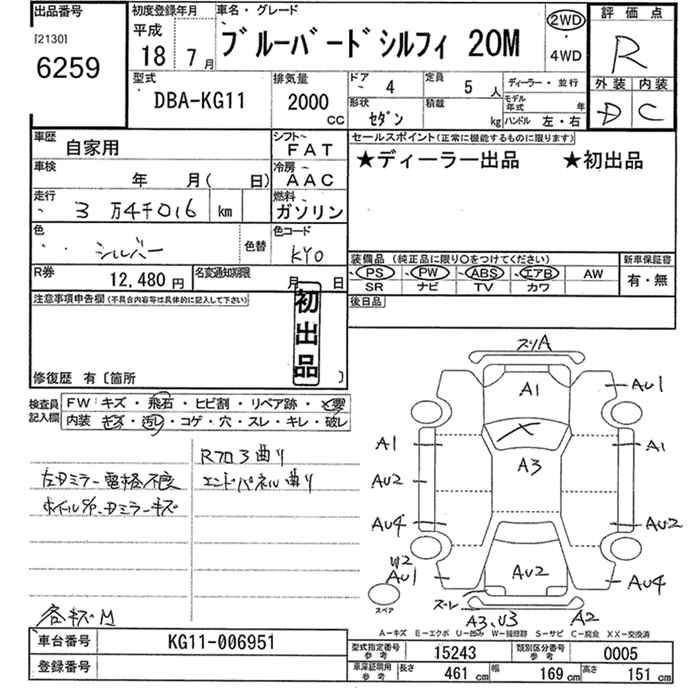 出品番号
[2130]
6259
初度登録年月
平成
18年 7月
車名・グレード
ブルーバードシルフィ 20M
2WD
・
4WD
評価点
R
外装 内装
D C
型式
DBA-KG11
排気量
2000
CC
ドア
4
定員
5人
形状
セダン
積載
kg
ディーラー・並行
モデル年式 年
ハンドル 左・右
車歴
自家用
シフト
FAT
車検
年 月( 日)
冷房
AAC
走行
3万4千016 km
燃料
ガソリン
色
シルバー
色替
色コード
KY0
R券
12,480円
名変通知期限
月 日
セールスポイント(正常に機能するものに限ります)
★ディーラー出品 ★初出品
装備品(純正品に限り○をつけてください)
PS PW ABS エアB AW
SR ナビ TV カワ
新車保証書
有・無
後日品
注意事項申告欄(不具合内容等は具体的に記入して下さい)
初出品
修復歴 有〔箇所 〕
検査員記入欄
FW:キズ・飛石・ヒビ割・リペア跡・×要
内装:キズ・汚レ・コゲ・穴・スレ・キレ・破レ
Rフロア曲り
左ドミラー電格不良
エンドパネル曲り
ホイルS/P.ドミラーキズ
各キズM
スリA
A1
AU1
A1
A3
A1
AU2
AU4
AU2
W2
AU1
AU2
AU4
スペア
スレ
A3、U3
A2
A-キズ E-エクボ U-凹み W-補修跡 S-サビ C-腐食 XX-交換済
車台番号
KG11-006951
登録番号
型式指定番号
参考
15243
類別区分番号
参考
0005
車庫証明用
参考
長さ
461 cm
幅
169 cm
高さ
151 cm